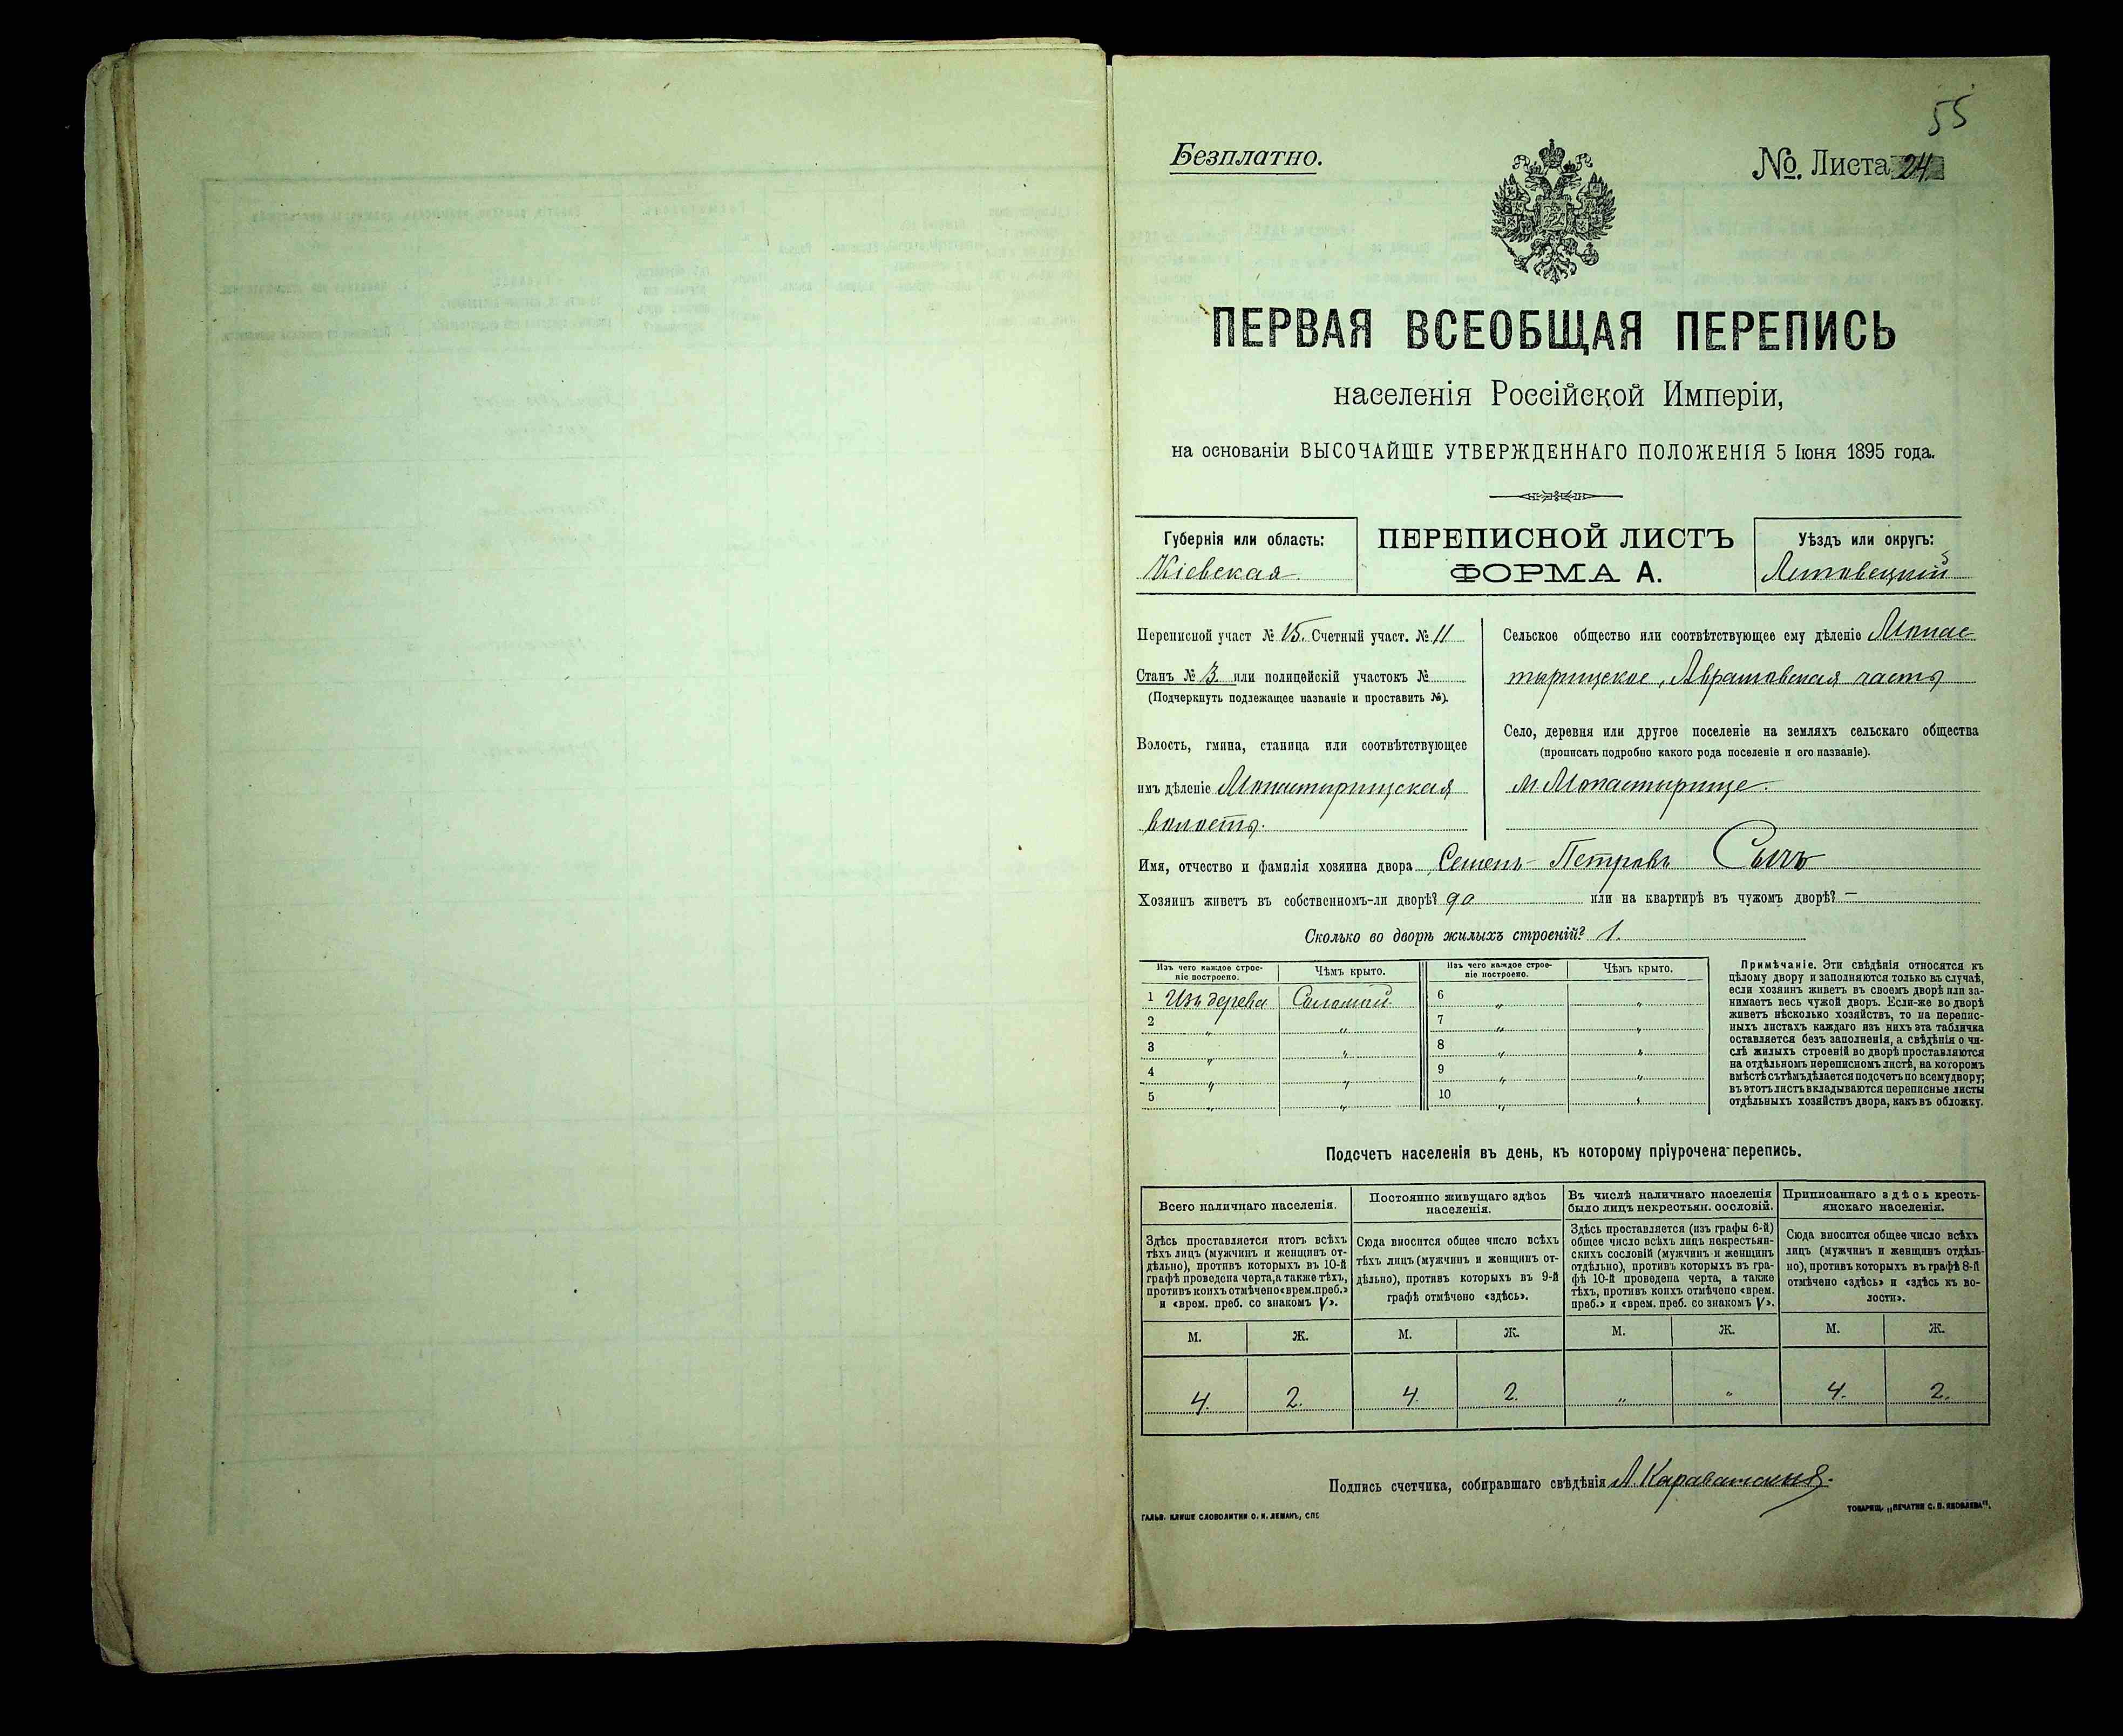 55
Безплатно.
№. Листа 24
ПЕРВАЯ ВСЕОБЩАЯ ПЕРЕПИСЬ
населенія Россійской Имперіи,
на основаніи ВЫСОЧАЙШЕ УТВЕРЖДЕННАГО ПОЛОЖЕНІЯ 5 Іюня 1895 года.
Губернія или область:
Кіевская
ПЕРЕПИСНОЙ ЛИСТЪ
ФОРМА А.
Уѣздъ или округъ:
Липовецкій
Переписной участ № 15. Счетный участ. № 11
Станъ № 3. или полицейскій участокъ №
(Подчеркнуть подлежащее названіе и проставить №).
Волость, гмина, станица или соотвѣтствующее
имъ дѣленіе Монастырищская
волость.
Сельское общество или соотвѣтствующее ему дѣленіе Монас
тырищское, Авратовская часть
Село, деревня или другое поселеніе на земляхъ сельскаго общества
(прописать подробно какого рода поселеніе и его названіе).
м Монастырище.
Имя, отчество и фамилія хозяина двора Семенъ Петровъ Сычъ
Хозяинъ живетъ въ собственномъ-ли дворѣ? да или на квартирѣ въ чужомъ дворѣ? —
Сколько во дворѣ жилыхъ строеній? 1.
Изъ чего каждое строе-
ніе построено.
Чѣмъ крыто.
Изъ чего каждое строе-
ніе построено.
Чѣмъ крыто.
1 Изъ дерева Соломой 6 " "
2 " " 7 " "
3 " " 8 " "
4 " " 9 " "
5 " " 10 " "
Примѣчаніе. Эти свѣдѣнія относятся къ
цѣлому двору и заполняются только въ случаѣ,
если хозяинъ живетъ въ своемъ дворѣ или за-
нимаетъ весь чужой дворъ. Если-же во дворѣ
живетъ нѣсколько хозяйствъ, то на перепис-
ныхъ листахъ каждаго изъ нихъ эта табличка
оставляется безъ заполненія, а свѣдѣнія о чи-
слѣ жилыхъ строеній во дворѣ проставляются
на отдѣльномъ переписномъ листѣ, на которомъ
вмѣстѣ съ тѣмъ дѣлается подсчетъ по всему двору;
въ этотъ листъ вкладываются переписные листы
отдѣльныхъ хозяйствъ двора, какъ въ обложку.
Подсчетъ населенія въ день, къ которому пріурочена перепись.
Всего наличнаго населенія.
Здѣсь проставляется итогъ всѣхъ
тѣхъ лицъ (мужчинъ и женщинъ от-
дѣльно), противъ которыхъ въ 10-й
графѣ проведена черта, а также тѣхъ,
противъ коихъ отмѣчено «врем. преб.»
и «врем. преб. со знакомъ V».
Постоянно живущаго здѣсь
населенія.
Сюда вносится общее число всѣхъ
тѣхъ лицъ (мужчинъ и женщинъ от-
дѣльно), противъ которыхъ въ 9-й
графѣ отмѣчено «здѣсь».
Въ числѣ наличнаго населенія
было лицъ некрестьян. сословій.
Здѣсь проставляется (изъ графы 6-й)
общее число всѣхъ лицъ некрестьян-
скихъ сословій (мужчинъ и женщинъ
отдѣльно), противъ которыхъ въ гра-
фѣ 10-й проведена черта, а также
тѣхъ, противъ коихъ отмѣчено «врем.
преб.» и «врем. преб. со знакомъ V».
Приписаннаго здѣсь кресть-
янскаго населенія.
Сюда вносится общее число всѣхъ
лицъ (мужчинъ и женщинъ отдѣль-
но), противъ которыхъ въ графѣ 8-й
отмѣчено «здѣсь» и «здѣсь къ во-
лости».
М. Ж. М. Ж. М. Ж. М. Ж.
4. 2. 4. 2. " " 4. 2.
Подпись счетчика, собиравшаго свѣдѣнія
ГАЛЬВ. КЛИШЕ СЛОВОЛИТНИ О. И. ЛЕМАНЪ, СПБ
ТОВАРИЩ. „ПЕЧАТНИ С. П. ЯКОВЛЕВА".